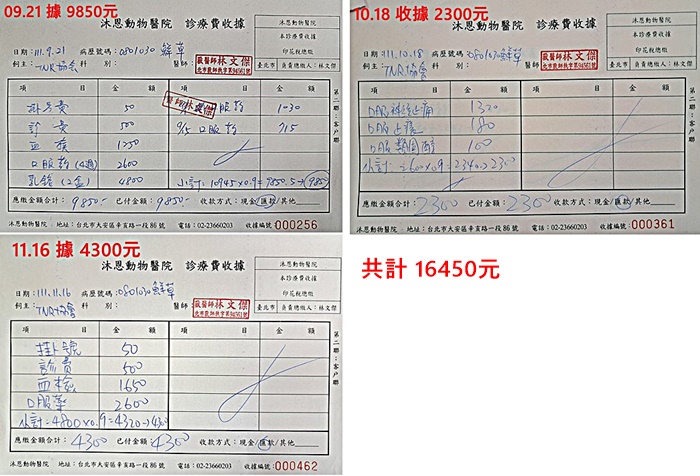 09.21 據 9850元
沐恩動物醫院 診療費收據
沐恩動物醫院
本診療費收據
印花稅總繳
臺北市 負責總繳人:林文傑
日期:111.9.21 病歷號碼:0801030 鮮草
飼主:TNR協會 科 別: 醫師:
獸醫師林文傑
項 目 金 額 項 目 金 額
掛号費 50
口服藥 1030
診 費 500 9/5 口服藥 715
血檢 1250
口服藥(4週) 2600
乳鉻(2盒) 4800 小計:10945×0.9=9850.5→9850
應繳金額合計:9850- 已付金額:9850- 收款方式:現金/匯款/其他
沐恩動物醫院 地址:台北市大安區辛亥路一段86號 電話:02-23660203 收據編號:000256
第二聯:客戶聯
10.18 收據 2300元
沐恩動物醫院 診療費收據
沐恩動物醫院
本診療費收據
印花稅總繳
臺北市 負責總繳人:林文傑
日期:111.10.18 病歷號碼:0801030鮮草
飼主:TNR協會 科 別: 醫師:
獸醫師林文傑
項 目 金 額 項 目 金 額
口服神經止痛 1320
口服止痛 180
口服類固醇 1100
小計:2600×0.9=2340→2300
應繳金額合計:2300 已付金額:2300 收款方式:現金/匯款/其他
沐恩動物醫院 地址:台北市大安區辛亥路一段86號 電話:02-23660203 收據編號:000361
第二聯:客戶聯
11.16 據 4300元
沐恩動物醫院 診療費收據
沐恩動物醫院
本診療費收據
印花稅總繳
臺北市 負責總繳人:林文傑
日期:111.11.16 病歷號碼:0801030鮮草
飼主:TNR協會 科 別: 醫師:
獸醫師林文傑
項 目 金 額 項 目 金 額
掛號 50
診費 500
血檢 1650
口服藥 2600
小計=4800×0.9=4320→4300
應繳金額合計:4300 已付金額:4300 收款方式:現金/匯款/其他
沐恩動物醫院 地址:台北市大安區辛亥路一段86號 電話:02-23660203 收據編號:000462
第二聯:客戶聯
共計 16450元